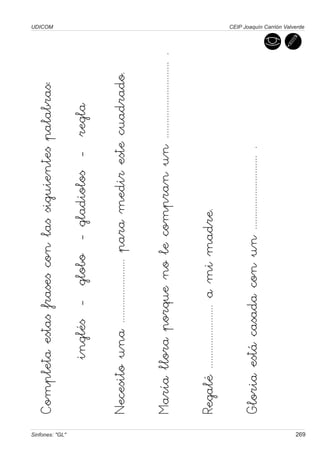 UDICOM
CEIP Joaquín Carrión Valverde
Completa estas frases con las siguientes palabras:
inglés - globo - gladiolos - regla
Necesito una ........................ para medir este cuadrado.
María llora porque no le compran un ............................ .
Regalé ...................... a mi madre.
Gloria está casada con un ............................ .
Sinfones: "GL"
269